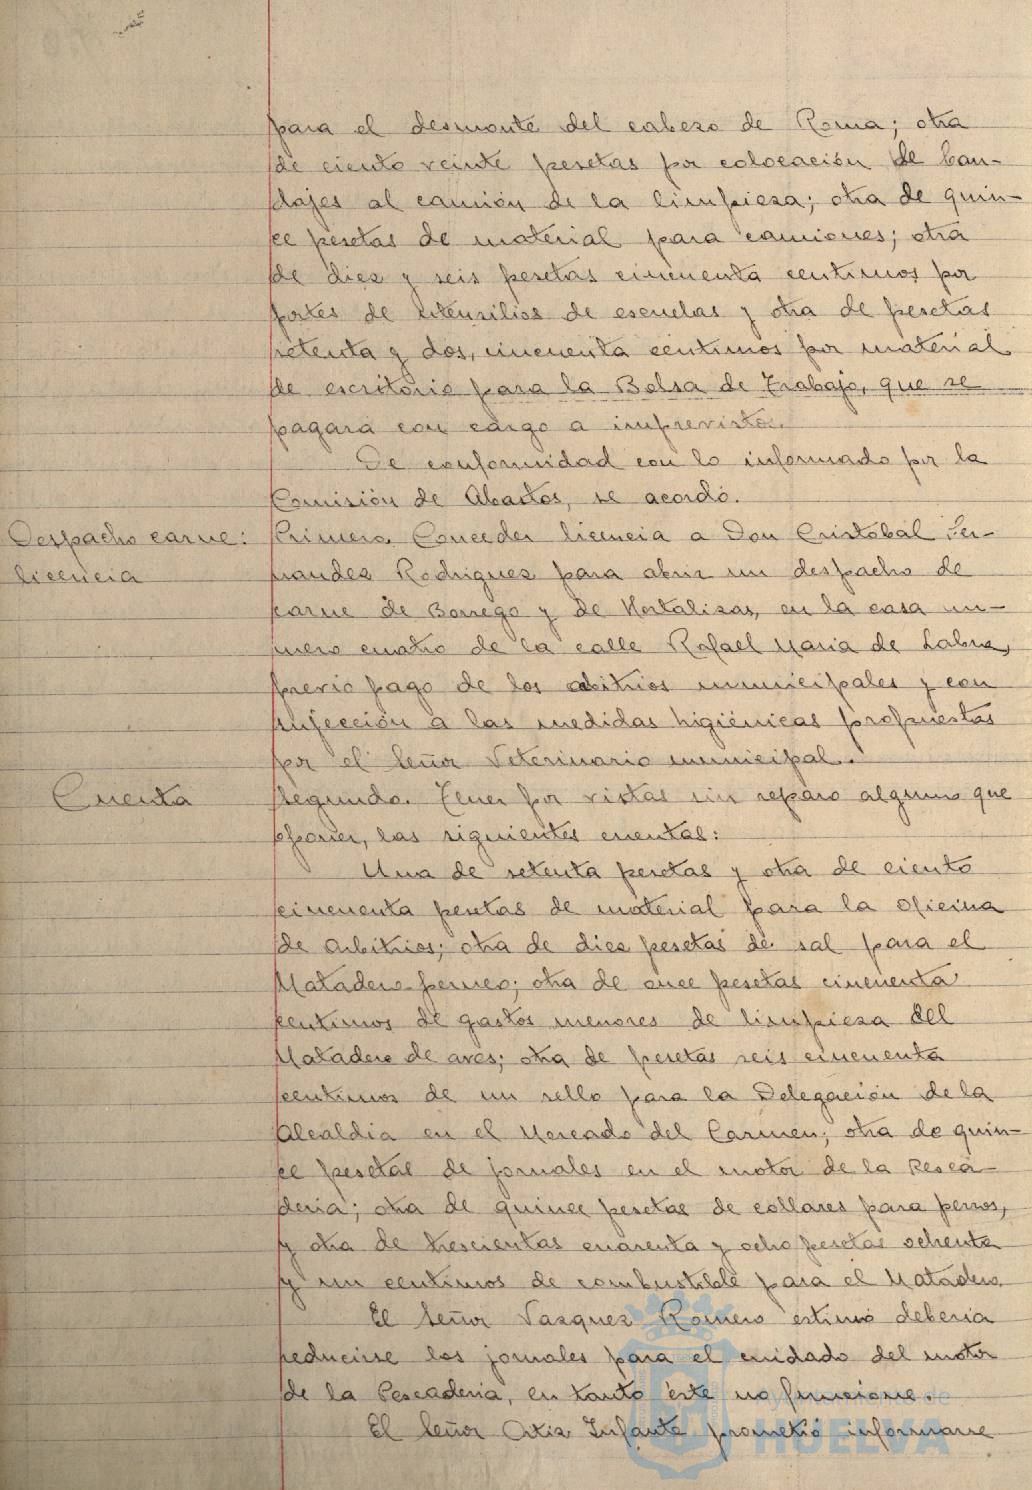 para el desmonte del cabezo de Roma; otra
de ciento veinte pesetas por colocación de ban-
dajes al camión de la limpieza; otra de quin-
ce pesetas de material para camiones; otra
de diez y seis pesetas cincuenta centimos por
portes de utensilios de escuelas y otra de pesetas
setenta y dos, cincuenta centimos por material
de escritorio para la Bolsa de Trabajo, que se
pagará con cargo a imprevistos.
De conformidad con lo informado por la
Comisión de Abastos, se acordó.
Despacho carne: Primero. Conceder licencia a Don Cristóbal Fer-
licencia nandez Rodriguez para abrir un despacho de
carne de Borrego y de Hortalizas, en la casa nu-
mero cuatro de la calle Rafael Maria de Labra,
previo pago de los arbitrios municipales y con
sujección a las medidas higiénicas propuestas
por el Señor Veterinario municipal.
Cuenta Segundo. Tener por vistas sin reparo alguno que
oponer, las siguientes cuentas:
Una de setenta pesetas y otra de ciento
cincuenta pesetas de material para la oficina
de Arbitrios; otra de diez pesetas de sal para el
Matadero perneo; otra de once pesetas cincuenta
centimos de gastos menores de limpieza del
Matadero de aves; otra de pesetas seis cincuenta
centimos de un sello para la Delegación de la
Alcaldia en el Mercado del Carmen; otra de quin-
ce pesetas de jornales en el motor de la Pesca-
deria; otra de quince pesetas de collares para perros,
y otra de trescientas cuarenta y ocho pesetas ochenta
y un centimos de combustible para el Matadero.
El Señor Vazquez Romero estimó deberia
reducirse los jornales para el cuidado del motor
de la Pescaderia, en tanto éste no funcione.
El Señor Ortiz Infante prometió informarse
Ayuntamiento de
HUELVA